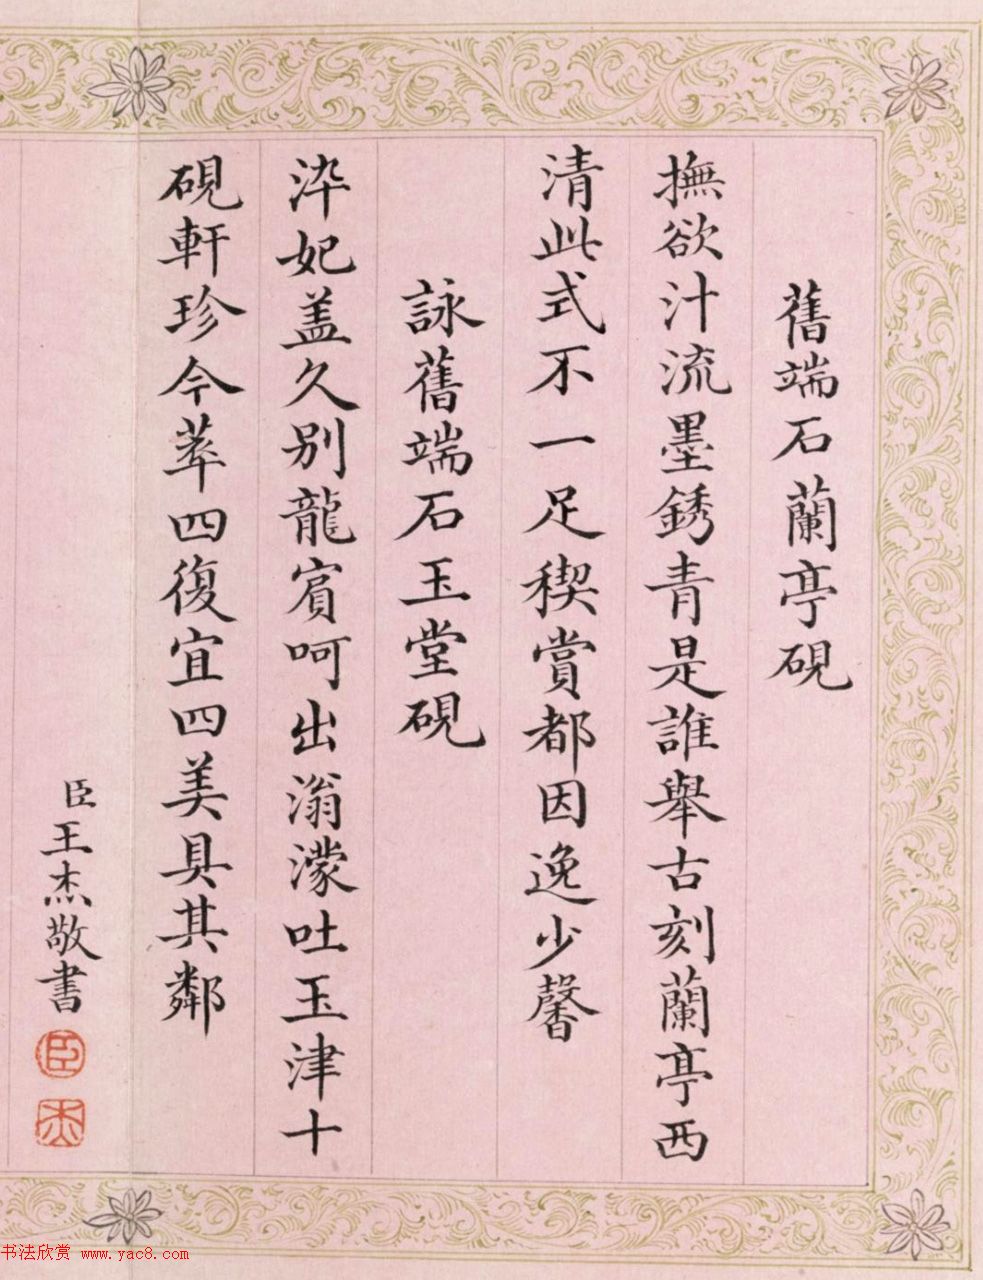 舊端石蘭亭硯
撫欲汁流墨銹青是誰舉古刻蘭亭西
清此式不一足稧賞都因逸少馨
詠舊端石玉堂硯
染妃盖久别龍賓呵出滃濛吐玉津十
硯軒珍今萃四復宜四美具其鄰
臣王杰敬書
臣
杰
书法欣赏 www.yac8.com